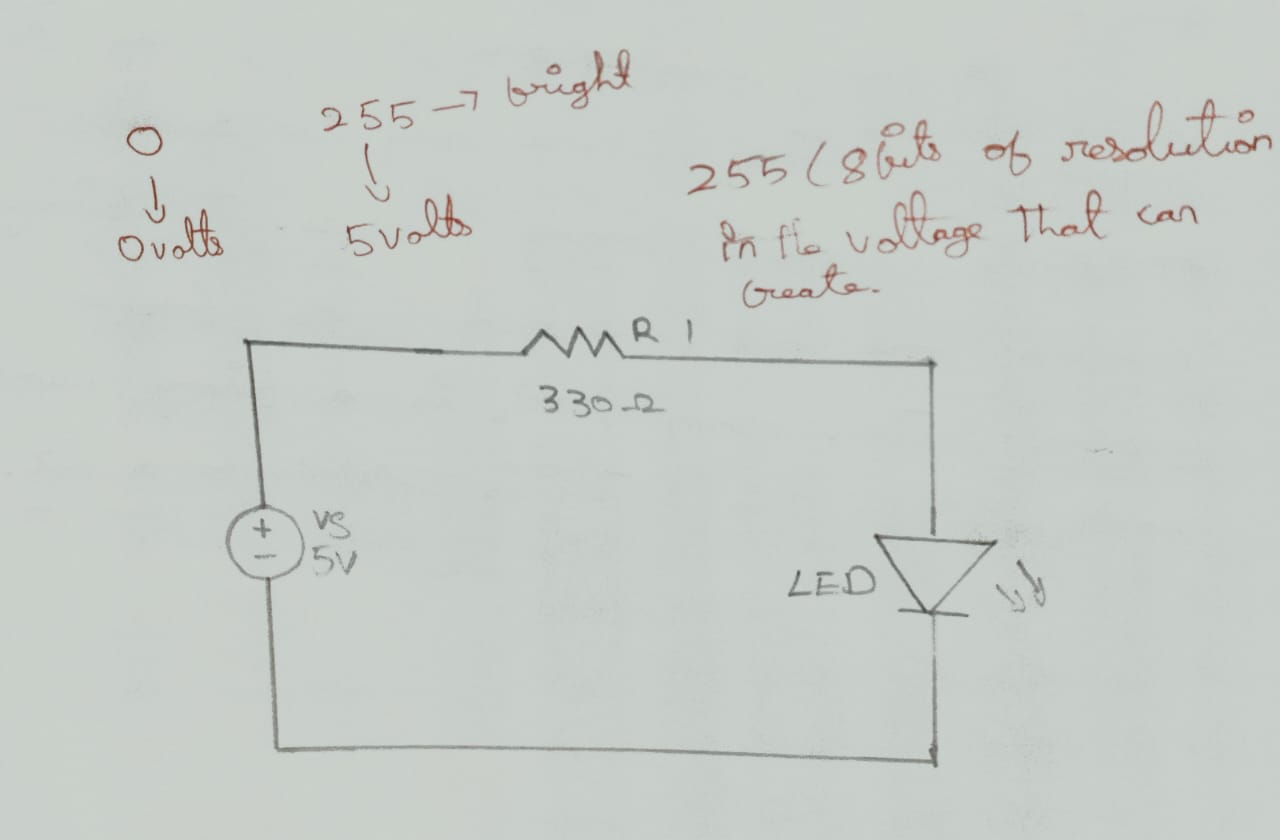 255 → bright
0
↓
0volts
↓
5volts
255 (8bits of resolution
in the voltage that can
create.
R 1
330Ω
+
−
VS
5V
LED